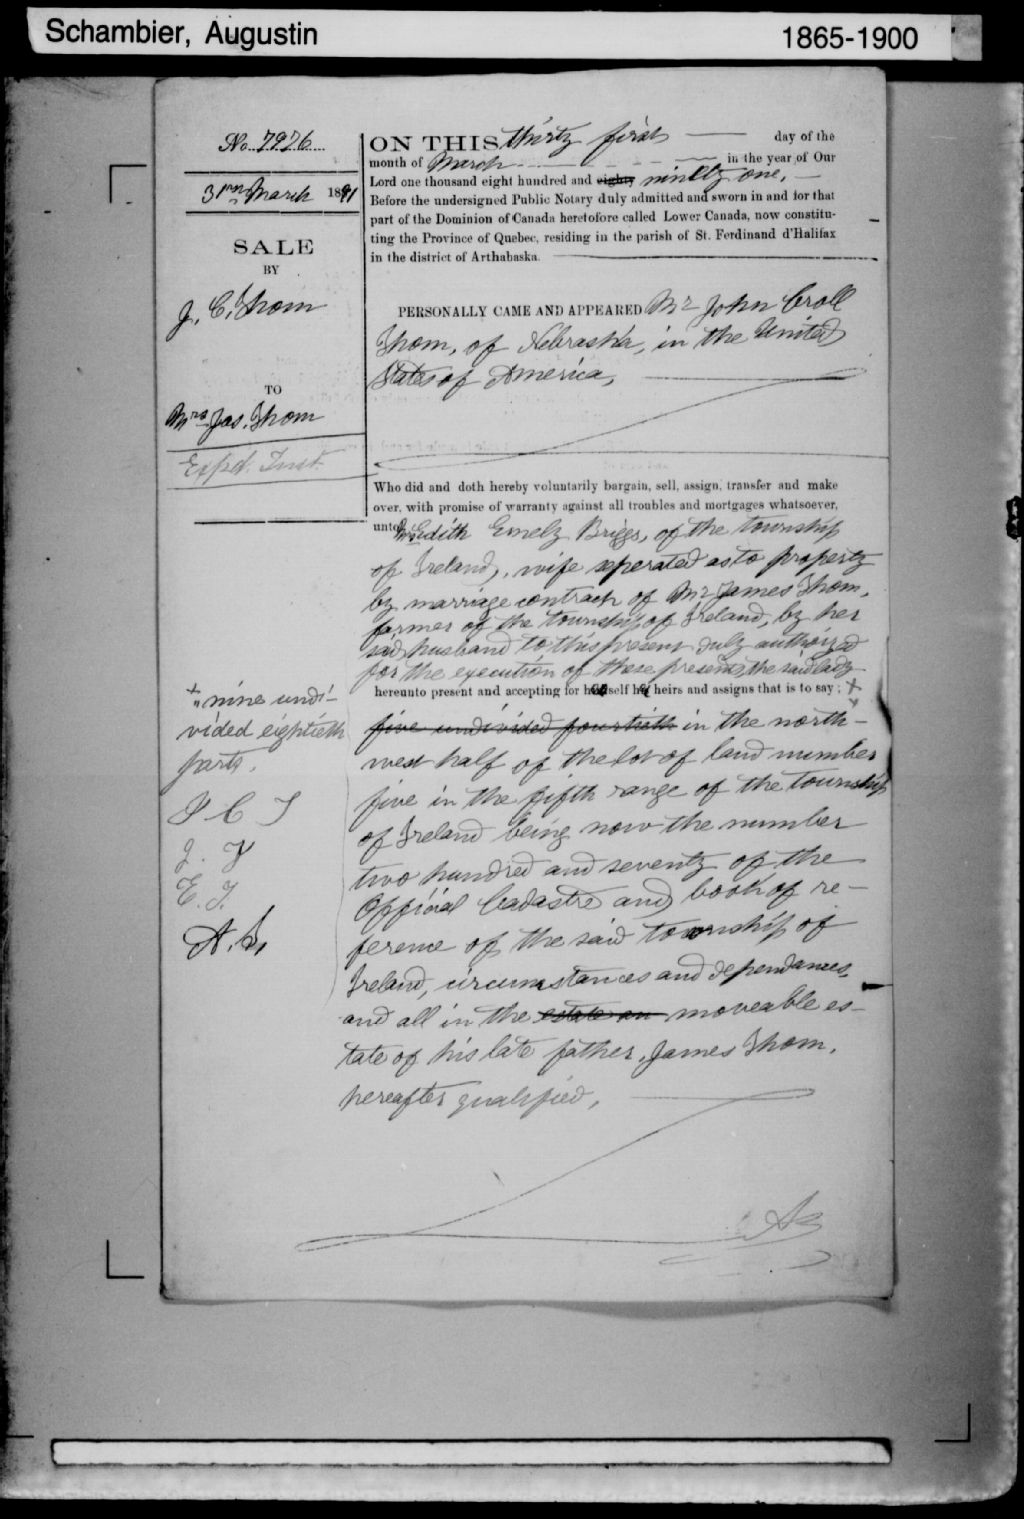 Schambier, Augustin
1865-1900
No. 7976
31 March 1891
SALE
BY
J. C. Thom
TO
Mrs Jas. Thom
Expd. Inst.
ON THIS thirty first day of the
month of March in the year of Our
Lord one thousand eight hundred and eighty ninety one,
Before the undersigned Public Notary duly admitted and sworn in and for that
part of the Dominion of Canada heretofore called Lower Canada, now constitu-
ting the Province of Quebec, residing in the parish of St. Ferdinand d'Halifax
in the district of Arthabaska.
PERSONALLY CAME AND APPEARED Mr John Croll
Thom, of Nebraska, in the United
States of America,
Who did and doth hereby voluntarily bargain, sell, assign, transfer and make
over, with promise of warranty against all troubles and mortgages whatsoever,
unto Mrs Edith Emely Briggs, of the township
of Ireland, wife seperated as to property
by marriage contract of Mr James Thom,
farmer of the township of Ireland, by her
said husband to this present duly authorized
for the execution of these presents, the said lady
hereunto present and accepting for herself her heirs and assigns that is to say : +
+ "nine undi-
vided eightieth
parts.
J C T
J. T
E. T.
A. S.
five undivided fourtieth in the north-
west half of the lot of land number
five in the fifth range of the township
of Ireland being now the number
two hundred and seventy of the
Official Cadastre and book of re-
ference of the said township of
Ireland, circumstances and dependances,
and all in the estate an moveable es-
tate of his late father, James Thom,
hereafter qualified,
AS